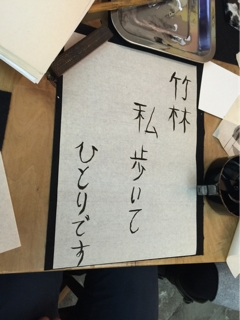 竹林
私歩いて
ひとりです